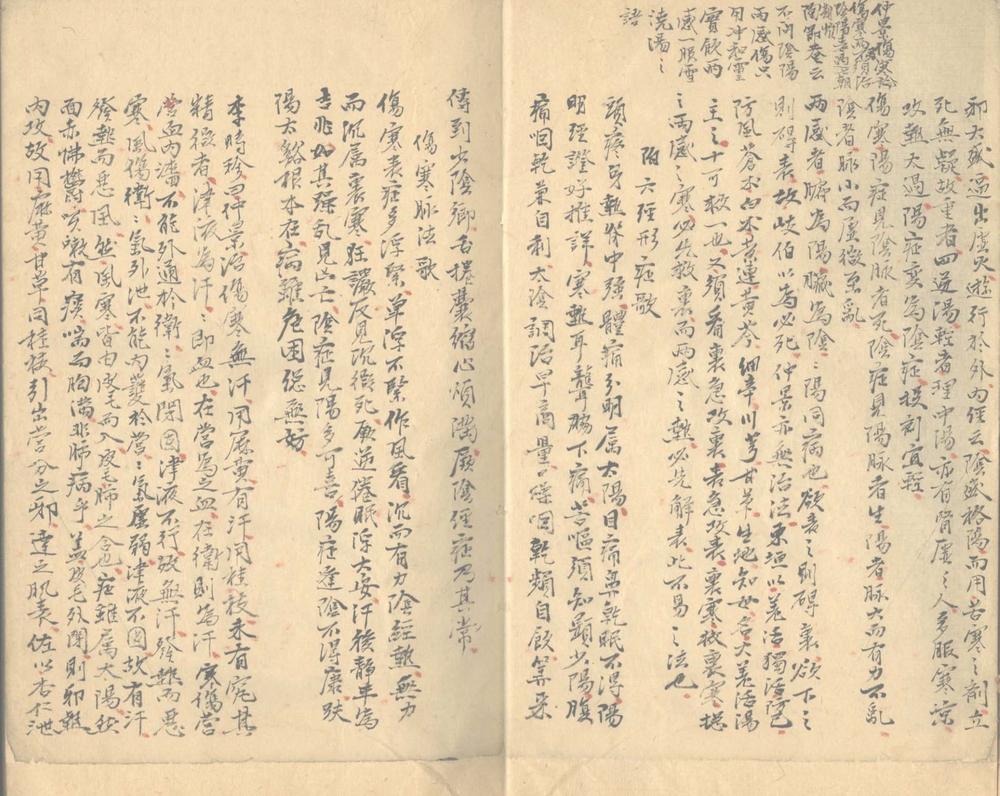 仲景傷寒於
傷寒兩感治
陰陽毒過經朝
類煩
陶節菴云
不问陰陽
两感傷以
用冲和灵
寳飲两
感一服雪
澆湯之
語
邪大盛逼出虚火遊行於外内經云陰盛格陽而用苦寒之剤立
死無疑故重者四逆湯輕者理中陽亦有腎虚之人多服寒凉
攻熱太過陽症変為陰症投剤宜輕
傷寒陽症見陰脉者死陰症見陽脉者生陽者脉大而有力不乱
陰者脉小而虚微至亂
两感者腑為陽臟為陰陰陽同病也欲表之則碍裏欲下之
則碍表故岐伯以為必死仲景亦無治法東垣以羌活獨活防已
防風蒼术白术黄連黄芩細辛川芎甘草生地知女名大羌活湯
主之十可救一也又須看裏急攻裏表急攻表裏寒救裏寒揔
之两感之寒必先救裏而两感之熱必先解表此不易之法也
附六經形症歌
頭疼身熱脊中强體痛分明属太陽目痛鼻乾眠不得陽
明經證好推詳寒熱耳聾脇下痛苦嘔須知題少陽腹
痛咽乾兼自利太陰調治早商量口燥咽乾類自飲算来
傳到少陰鄉舌捲囊縮心煩满厥陰經症乃其常
傷寒脉法歌
傷寒表症多浮緊单浮不緊作風看沉而有力陰經熱無力
而沉属裏寒狂讝反見沉微死厥逆倦眠浮大安汗後静半為
吉兆如其躁乱見亡陰症見陽多可喜陽症逢陰不得康趺
陽太谿根本在病雖危困總無妨
李時珍曰仲景治傷寒無汗用麻黄有汗用桂枝未有究其
精微者津液為汗汗即血也在营為血在衛則為汗寒傷营
营血内濇不能外通於衛衛氣閉固津液不行故無汗發熱而悪
寒風傷衛衛氣外泄不能内護於营营氣虚弱津液不固故有汗
發熱而悪風然風寒皆由皮毛而入皮毛肺之合也症雖属太陽然
面赤怫欝咳嗽有痰喘而胸满非肺病乎盖皮毛外閉則邪熱
内攻故用麻黄甘草同桂枝引出营分之邪達之肌表佐以杏仁泄